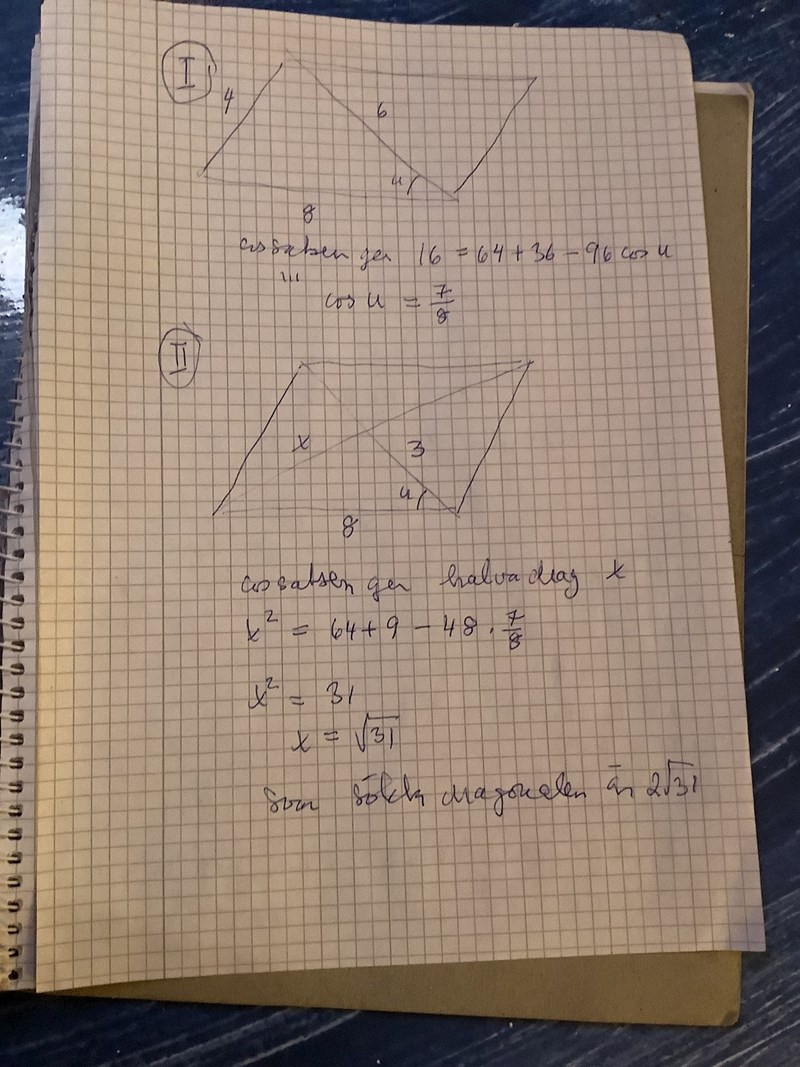 I
4
6
u
8
cossatsen ger 16 = 64 + 36 - 96 cos u
cos u = 7/8
II
x
3
u
8
cossatsen ger halva diag x
x² = 64 + 9 - 48 · 7/8
x² = 31
x = √31
Svar sökta diagonalen är 2√31